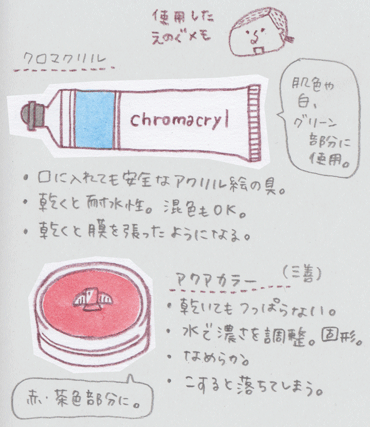 使用した
えのぐメモ
クロマクリル
chromacryl
肌色や
白、
グリーン
部分に
使用。
・口に入れても安全なアクリル絵の具。
・乾くと耐水性。混色もOK。
・乾くと膜を張ったようになる。
アクアカラー（三善）
・乾いてもつっぱらない。
・水で濃さを調整。固形。
・なめらか。
・こすると落ちてしまう。
赤・茶色部分に。